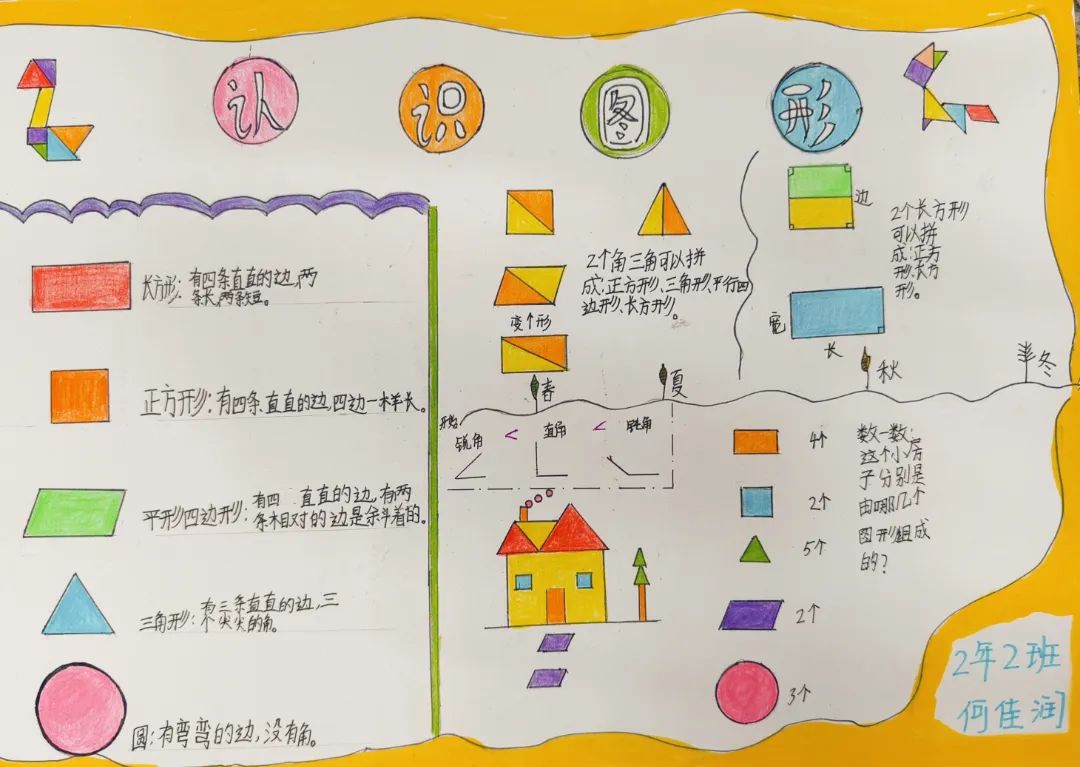 认识图形
长方形：有四条直直的边，两
条长，两条短。
正方形：有四条直直的边，四边一样长。
平形四边形：有四 直直的边，有两
条相对的边是斜着的。
三角形：有三条直直的边，三
个尖尖的角。
圆：有弯弯的边，没有角。
2个角三角可以拼
成：正方形、三角形、平行四
边形、长方形。
变个形
边
2个长方形
可以拼
成：正方
形、长方
形。
宽
长
春
夏
秋
冬
开始
锐角 < 直角 < 钝角
4个
2个
5个
2个
3个
数一数：
这个小房
子分别是
由哪几个
图形组成
的？
2年2班
何佳润